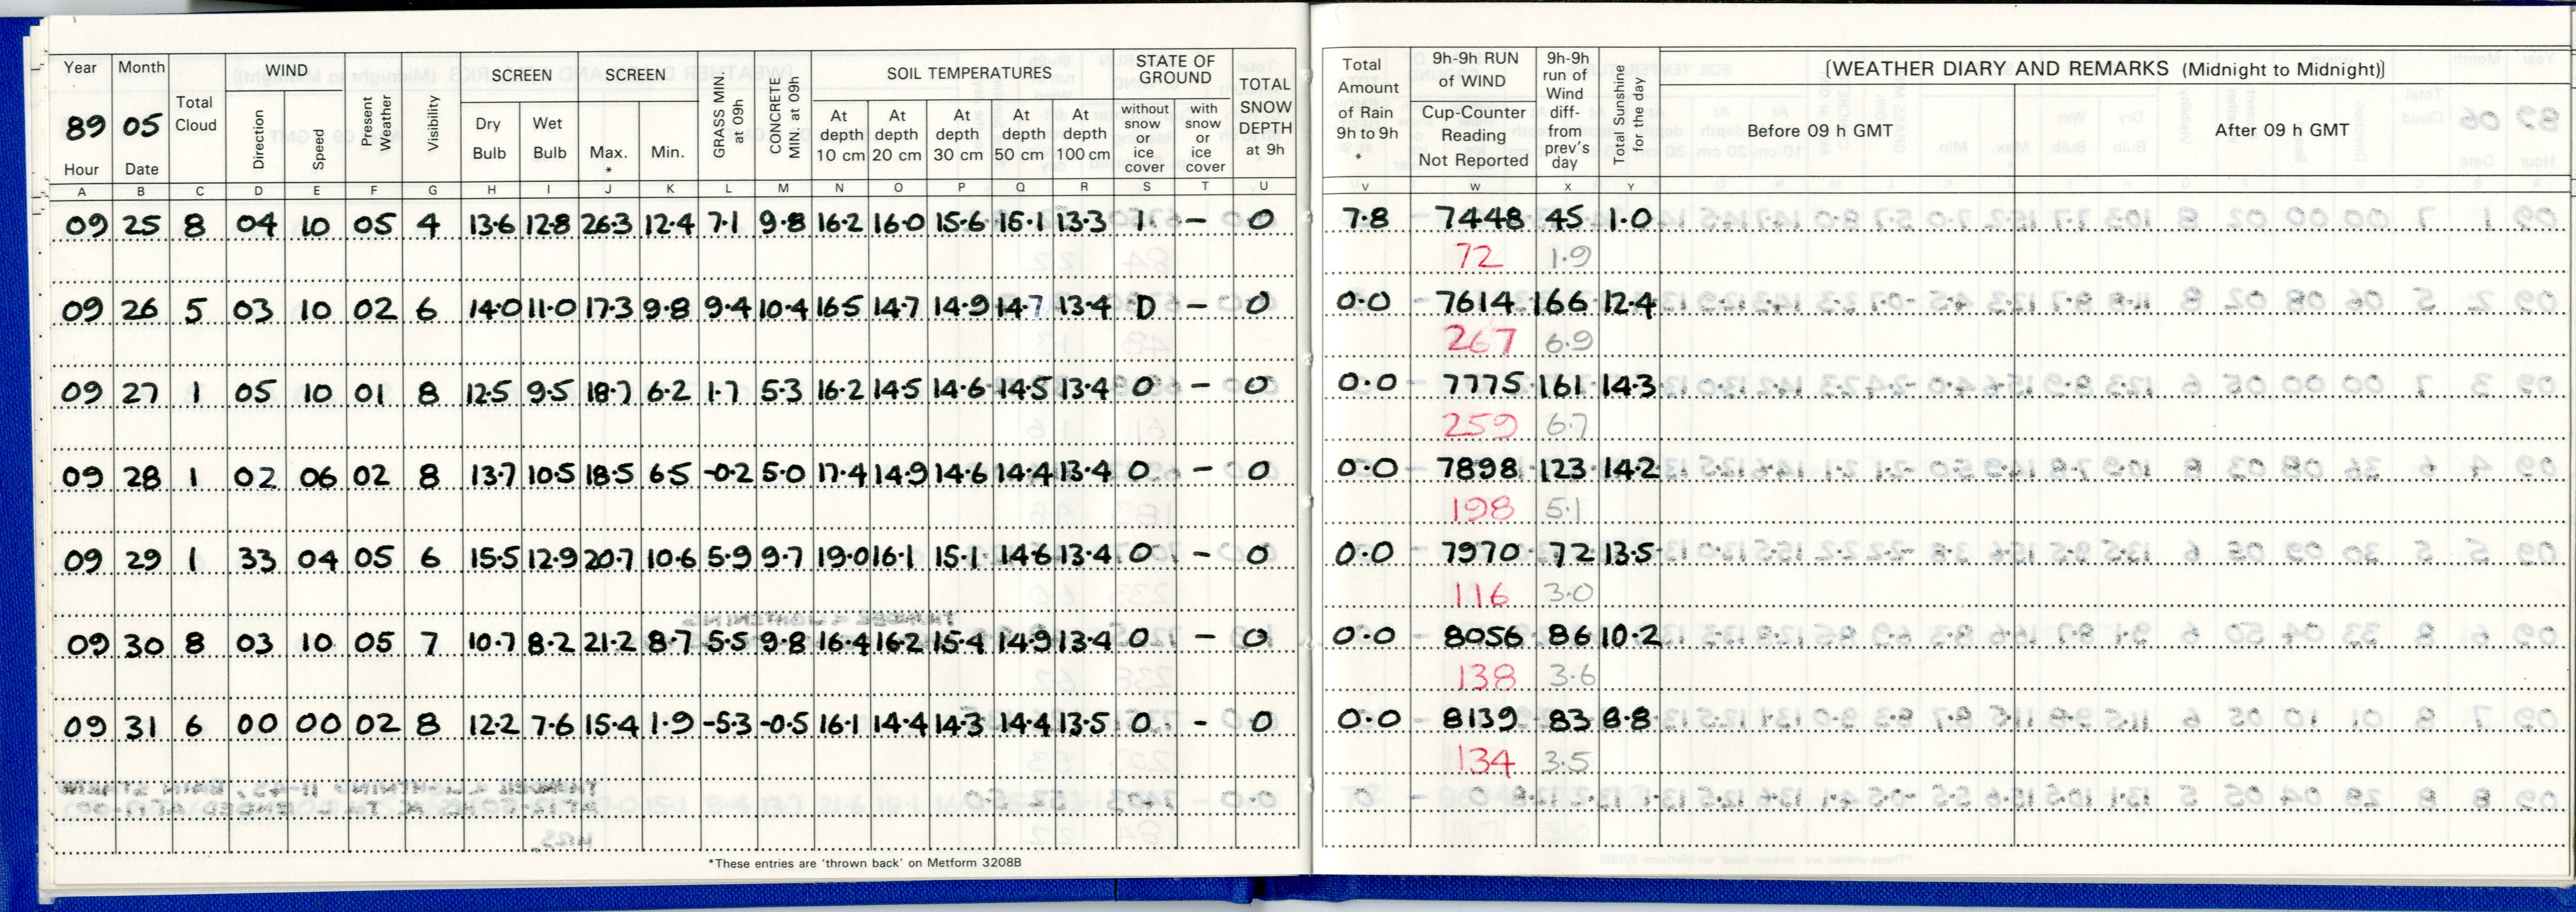 Year Month Total Cloud WIND Present Weather Visibility SCREEN SCREEN GRASS MIN. at 09h CONCRETE MIN. at 09h SOIL TEMPERATURES STATE OF GROUND TOTAL SNOW DEPTH at 9h Total Amount of Rain 9h to 9h * 9h-9h RUN of WIND 9h-9h run of Wind diff- from prev's day Total Sunshine for the day (WEATHER DIARY AND REMARKS (Midnight to Midnight))
89 05 Direction Speed Dry Bulb Wet Bulb Max. * Min. At depth 10 cm At depth 20 cm At depth 30 cm At depth 50 cm At depth 100 cm without snow or ice cover with snow or ice cover Cup-Counter Reading Not Reported Before 09 h GMT After 09 h GMT
Hour Date
A B C D E F G H I J K L M N O P Q R S T U V W X Y
09 25 8 04 10 05 4 13.6 12.8 26.3 12.4 7.1 9.8 16.2 16.0 15.6 15.1 13.3 1 - 0 7.8 7448 45 1.0
72 1.9
09 26 5 03 10 02 6 14.0 11.0 17.3 9.8 9.4 10.4 16.5 14.7 14.9 14.7 13.4 0 - 0 0.0 7614 166 12.4
267 6.9
09 27 1 05 10 01 8 12.5 9.5 18.7 6.2 1.7 5.3 16.2 14.5 14.6 14.5 13.4 0 - 0 0.0 7775 161 14.3
259 6.7
09 28 1 02 06 02 8 13.7 10.5 18.5 6.5 -0.2 5.0 17.4 14.9 14.6 14.4 13.4 0 - 0 0.0 7898 123 14.2
198 5.1
09 29 1 33 04 05 6 15.5 12.9 20.7 10.6 5.9 9.7 19.0 16.1 15.1 14.6 13.4 0 - 0 0.0 7970 72 13.5
116 3.0
09 30 8 03 10 05 7 10.7 8.2 21.2 8.7 5.5 9.8 16.4 16.2 15.4 14.9 13.4 0 - 0 0.0 8056 86 10.2
138 3.6
09 31 6 00 00 02 8 12.2 7.6 15.4 1.9 -5.3 -0.5 16.1 14.4 14.3 14.4 13.5 0 - 0 0.0 8139 83 8.8
134 3.5
*These entries are 'thrown back' on Metform 3208B